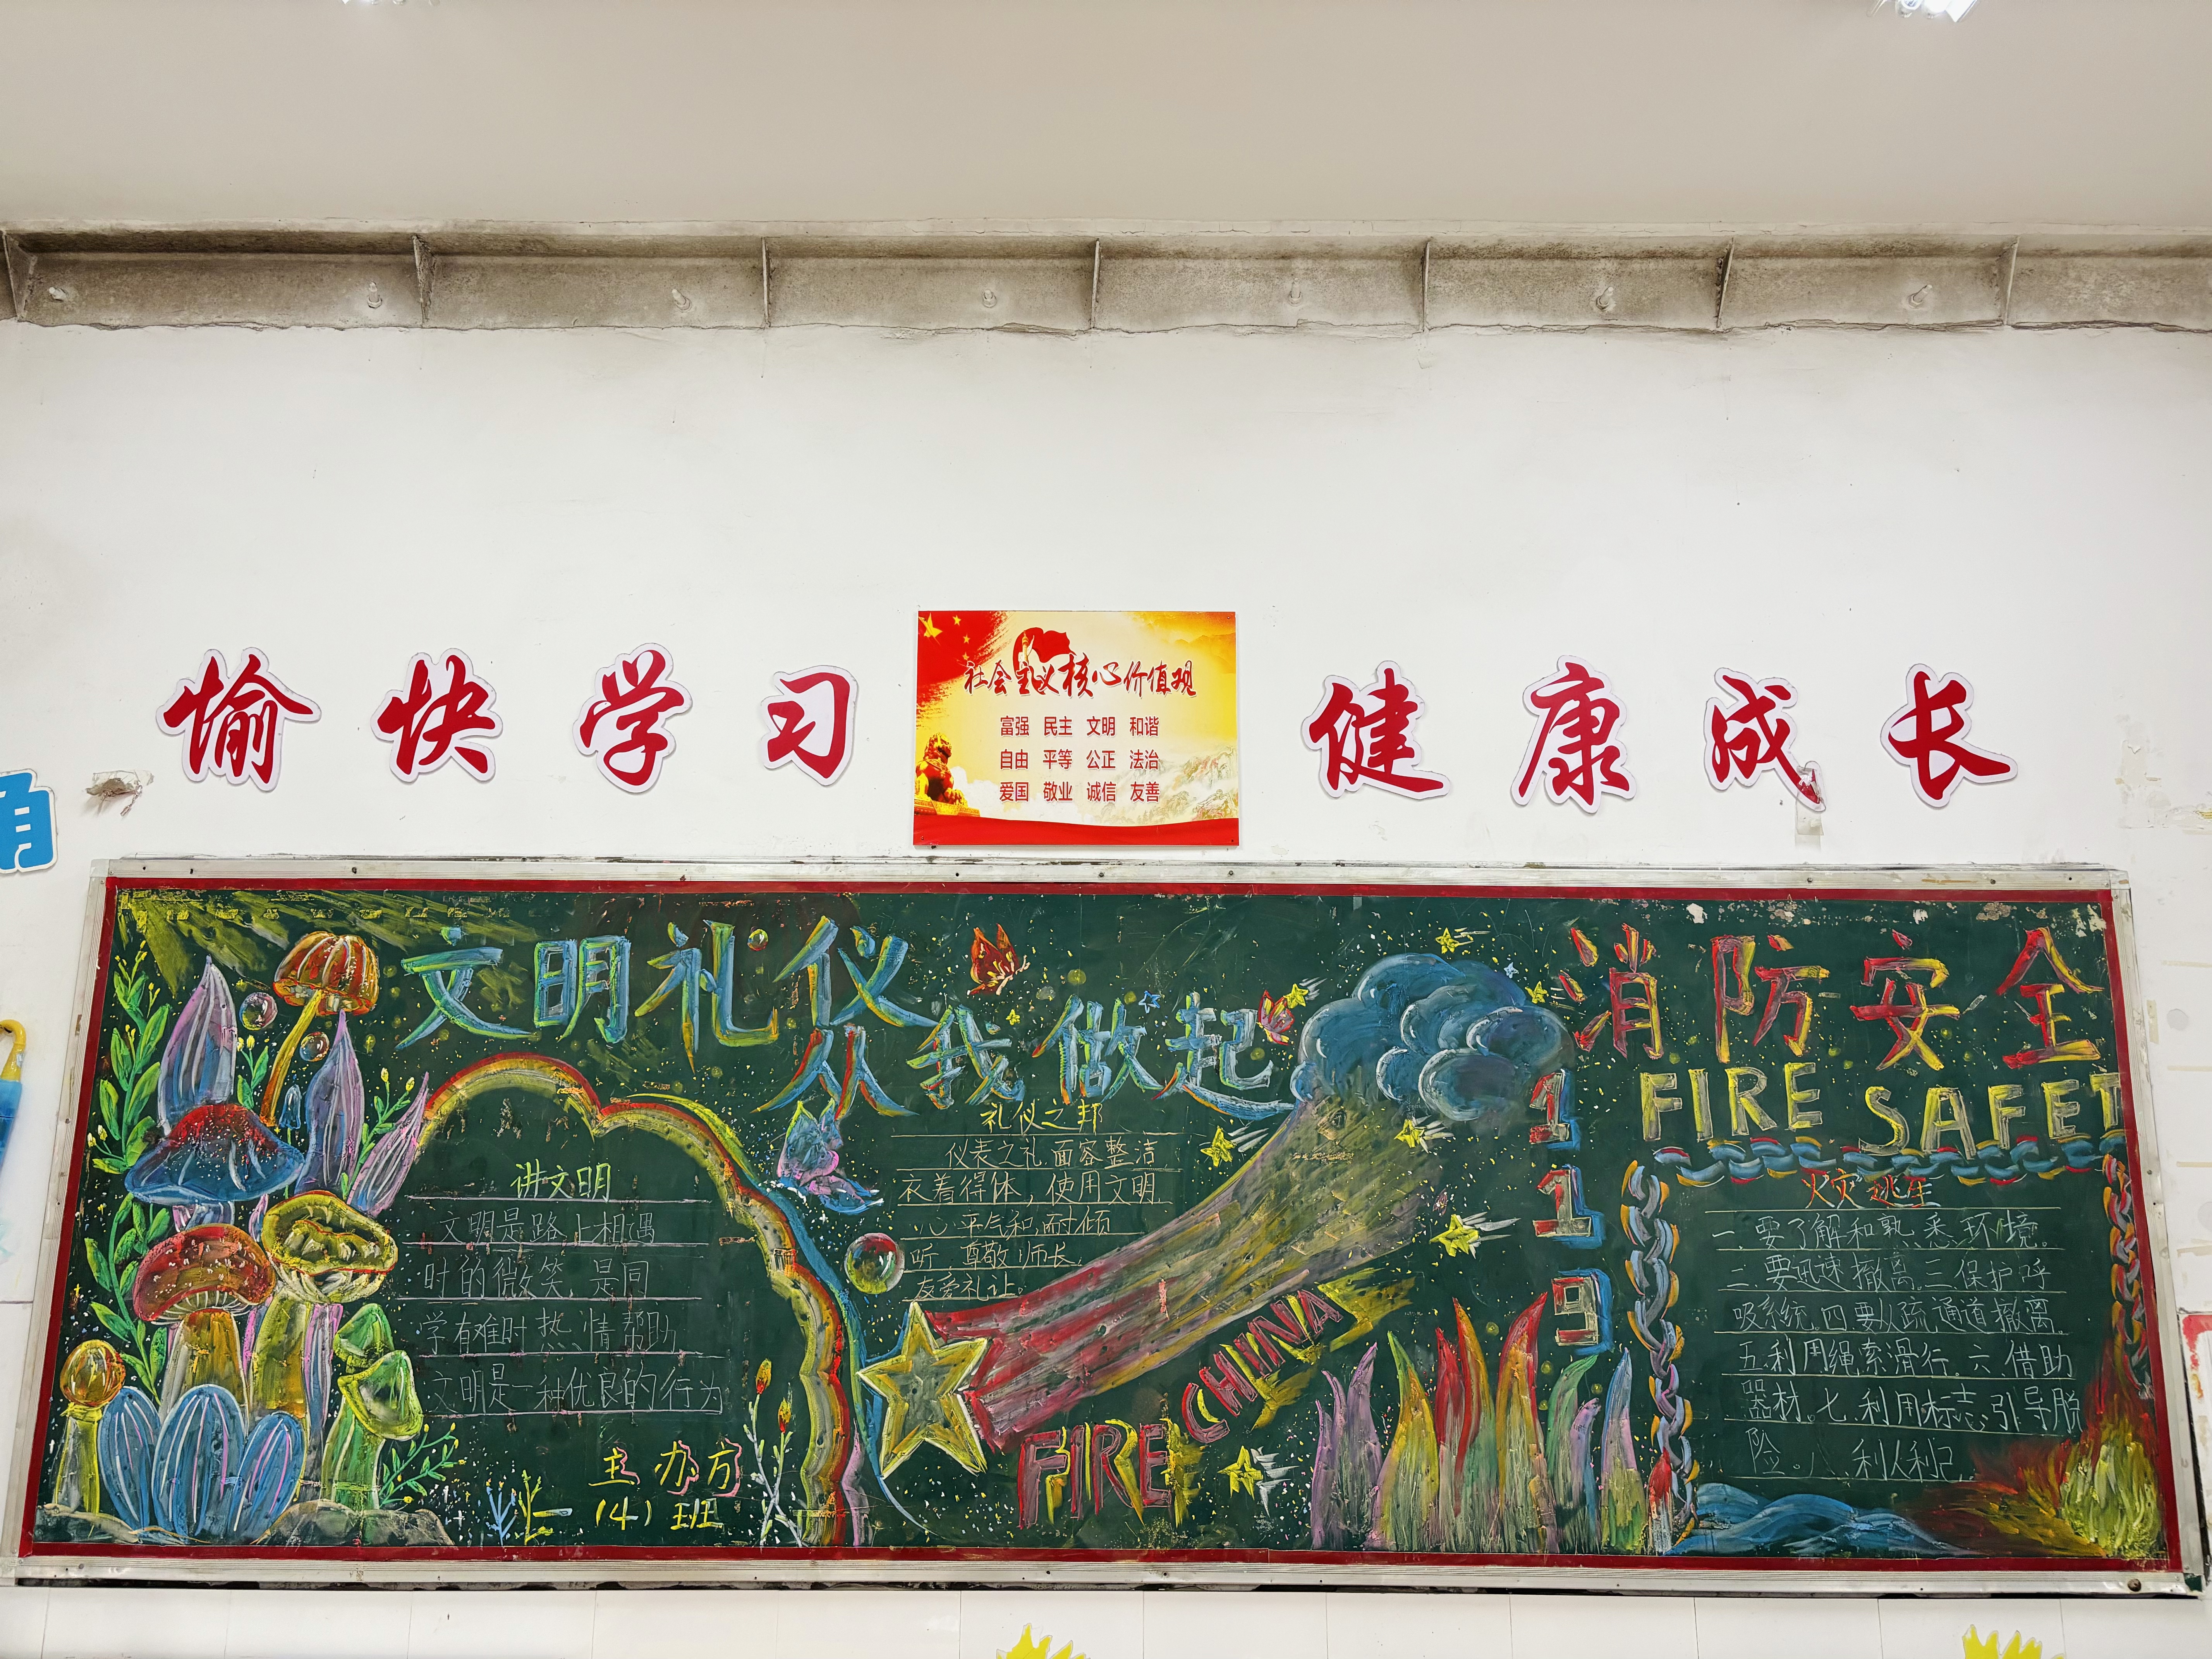 愉快学习
社会主义核心价值观
富强 民主 文明 和谐
自由 平等 公正 法治
爱国 敬业 诚信 友善
健康成长
文明礼仪
从我做起
讲文明
文明是路上相遇
时的微笑,是同
学有难时热情帮助
文明是一种优良的行为
主办方
(4)班
礼仪之邦
仪表之礼面容整洁
衣着得体,使用文明
心平气和,耐倾
听,尊敬师长,
友爱礼让。
FIRE CHINA
119
消防安全
FIRE SAFET
火灾逃生
一.要了解和熟悉环境。
二要迅速撤离.三保护呼
吸系统.四要从疏通道撤离.
五.利用绳索滑行.六.借助
器材.七.利用标志,引导脱
险。八.利人利己.